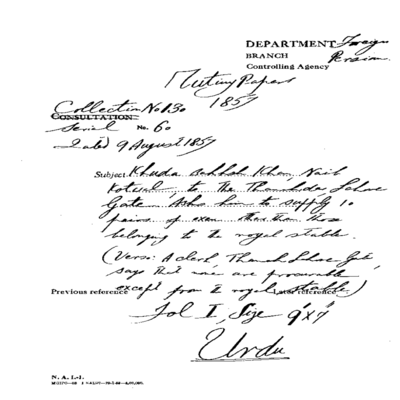 DEPARTMENT Foreign
BRANCH Persian
Controlling Agency
Mutiny Papers
1857
Collection No. 130
CONSULTATION
Serial No. 60
Dated 9 August 1857
Subject Khuda Bakhsh Khan, Naib
Kotwal, to the Thanedar Lahore
Gate. Asks him to supply 10
pairs of oxen other than those
belonging to the royal stable.
(Verso: A clerk, Thanah Lahore Gate,
says that none are procurable
Previous reference except from royal stable.) Later reference
Fol 1, Size 9" x 7"
Urdu
N. A. I.-1.